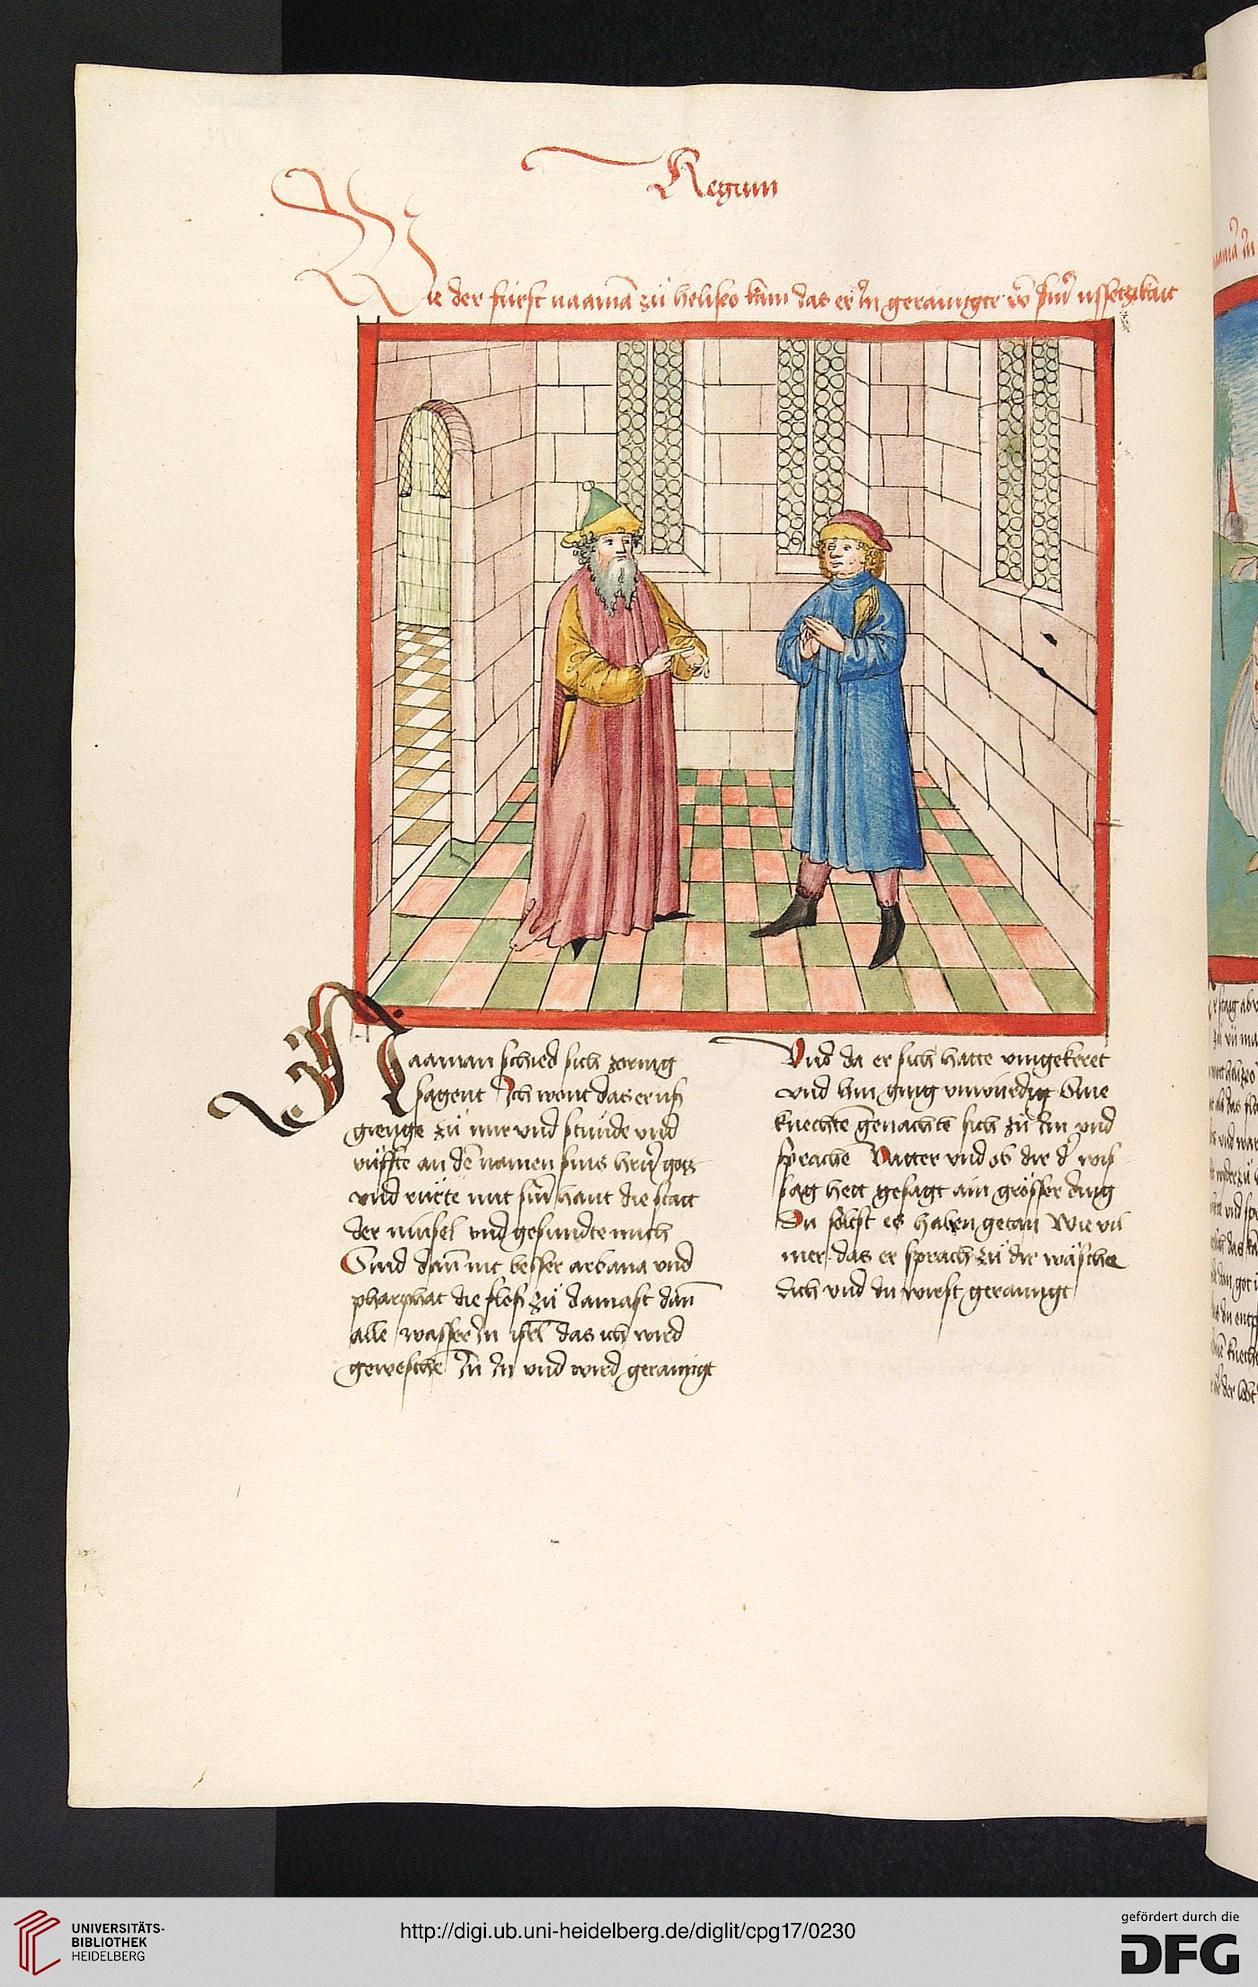 Regum
Wie der fúrst naamā zů heliseo kam das er in gerainigte vō siner ussetzikait
Naaman schied sich zornig
sagent Ich wont das er usß
gienge zů mir vnd stůnde vnd
růffte an den namen sins herrn gotz
vnd růrte mit siner hant die statt
der miusel vnd gesundte mich
Sind dann nit besser arbana vnd
pharphat die fleß zů damast dann
alle wasser in isrl das ich wird
gewesche in in vnd wird gerainigt
Vnd da er sich hatte vmgekeret
vnd hin ging vnwirdig Sine
knechte genachte sich zů im vnd
sprache Vatter vnd ob dir d' wis
sag hett gesagt ain grösser ding
Du soltest es haben getan Wie vil
mer das er sprach zů dir wäsche
dich vnd du wirst gerainigt
UNIVERSITÄTS-
BIBLIOTHEK
HEIDELBERG
http://digi.ub.uni-heidelberg.de/diglit/cpg17/0230
gefördert durch die
DFG